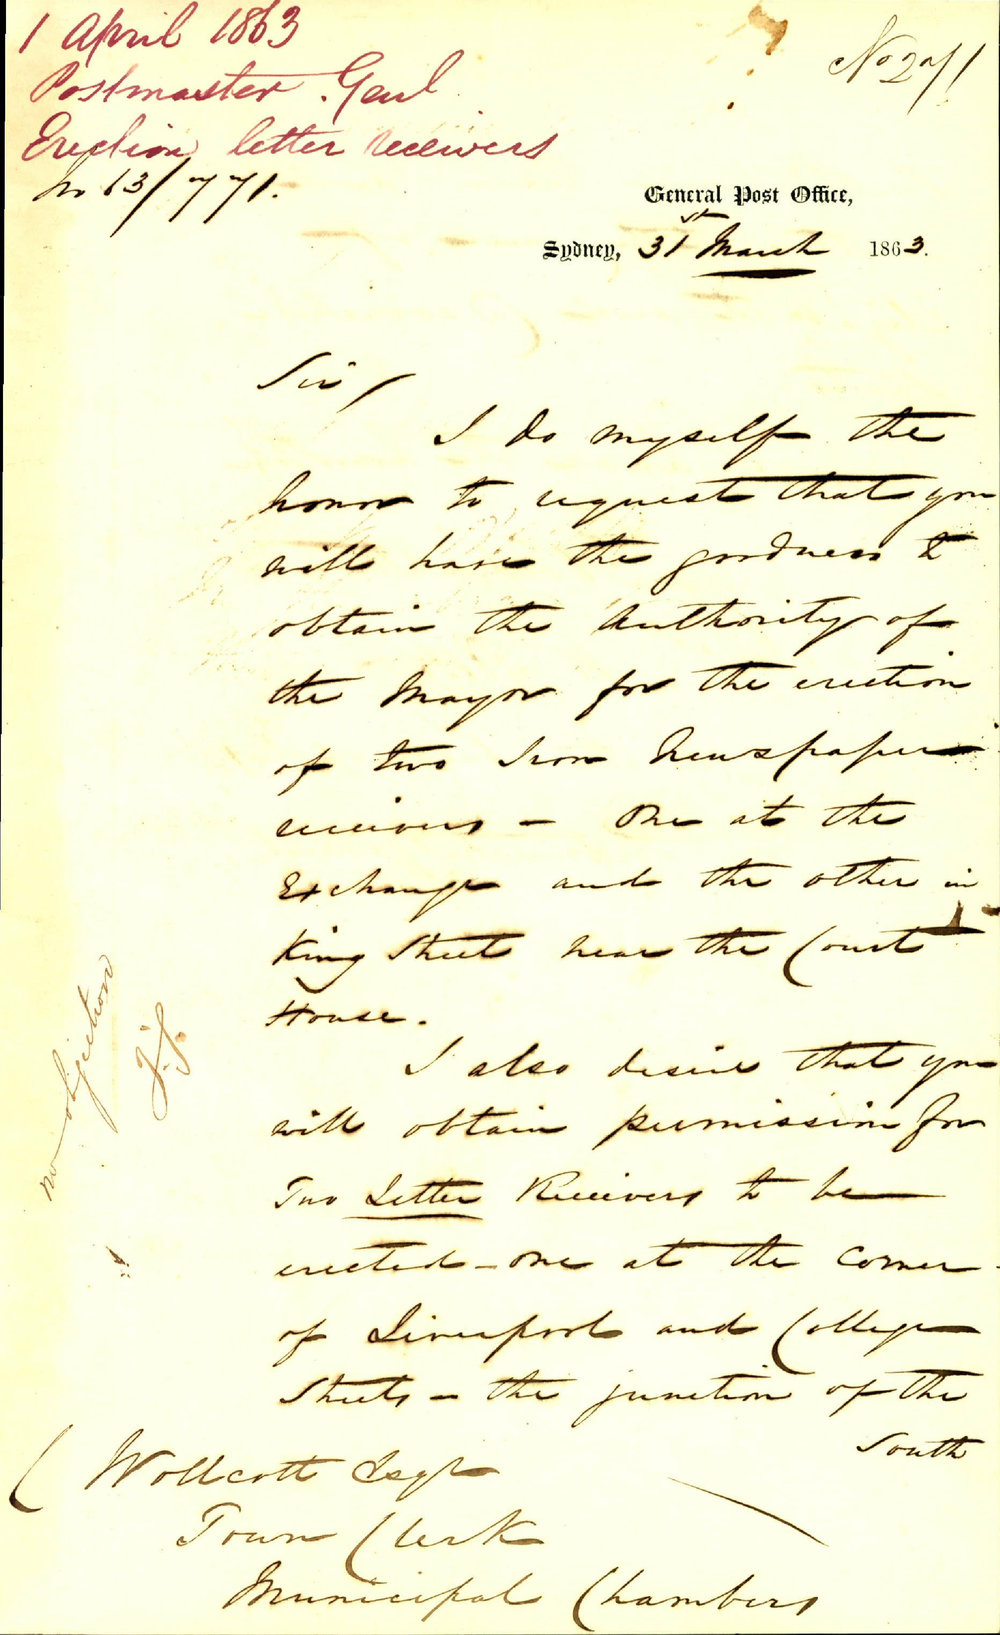 1 April 1863
Postmaster Genl
Erection letter receivers
No 63/771.
General Post Office,
Sydney, 31st March 1863.
Sir,
I do myself the
honor to request that you
will have the goodness to
obtain the Authority of
the Mayor for the erection
of two Iron Newspaper
receivers – One at the
Exchange and the other in
King Street near the Court
House.
I also desire that you
will obtain permission for
Two Letter Receivers to be
erected – one at the corner
of Liverpool and College
Streets – the junction of the
South
no objection
C Wollcott Esqr
Town Clerk
Municipal Chambers